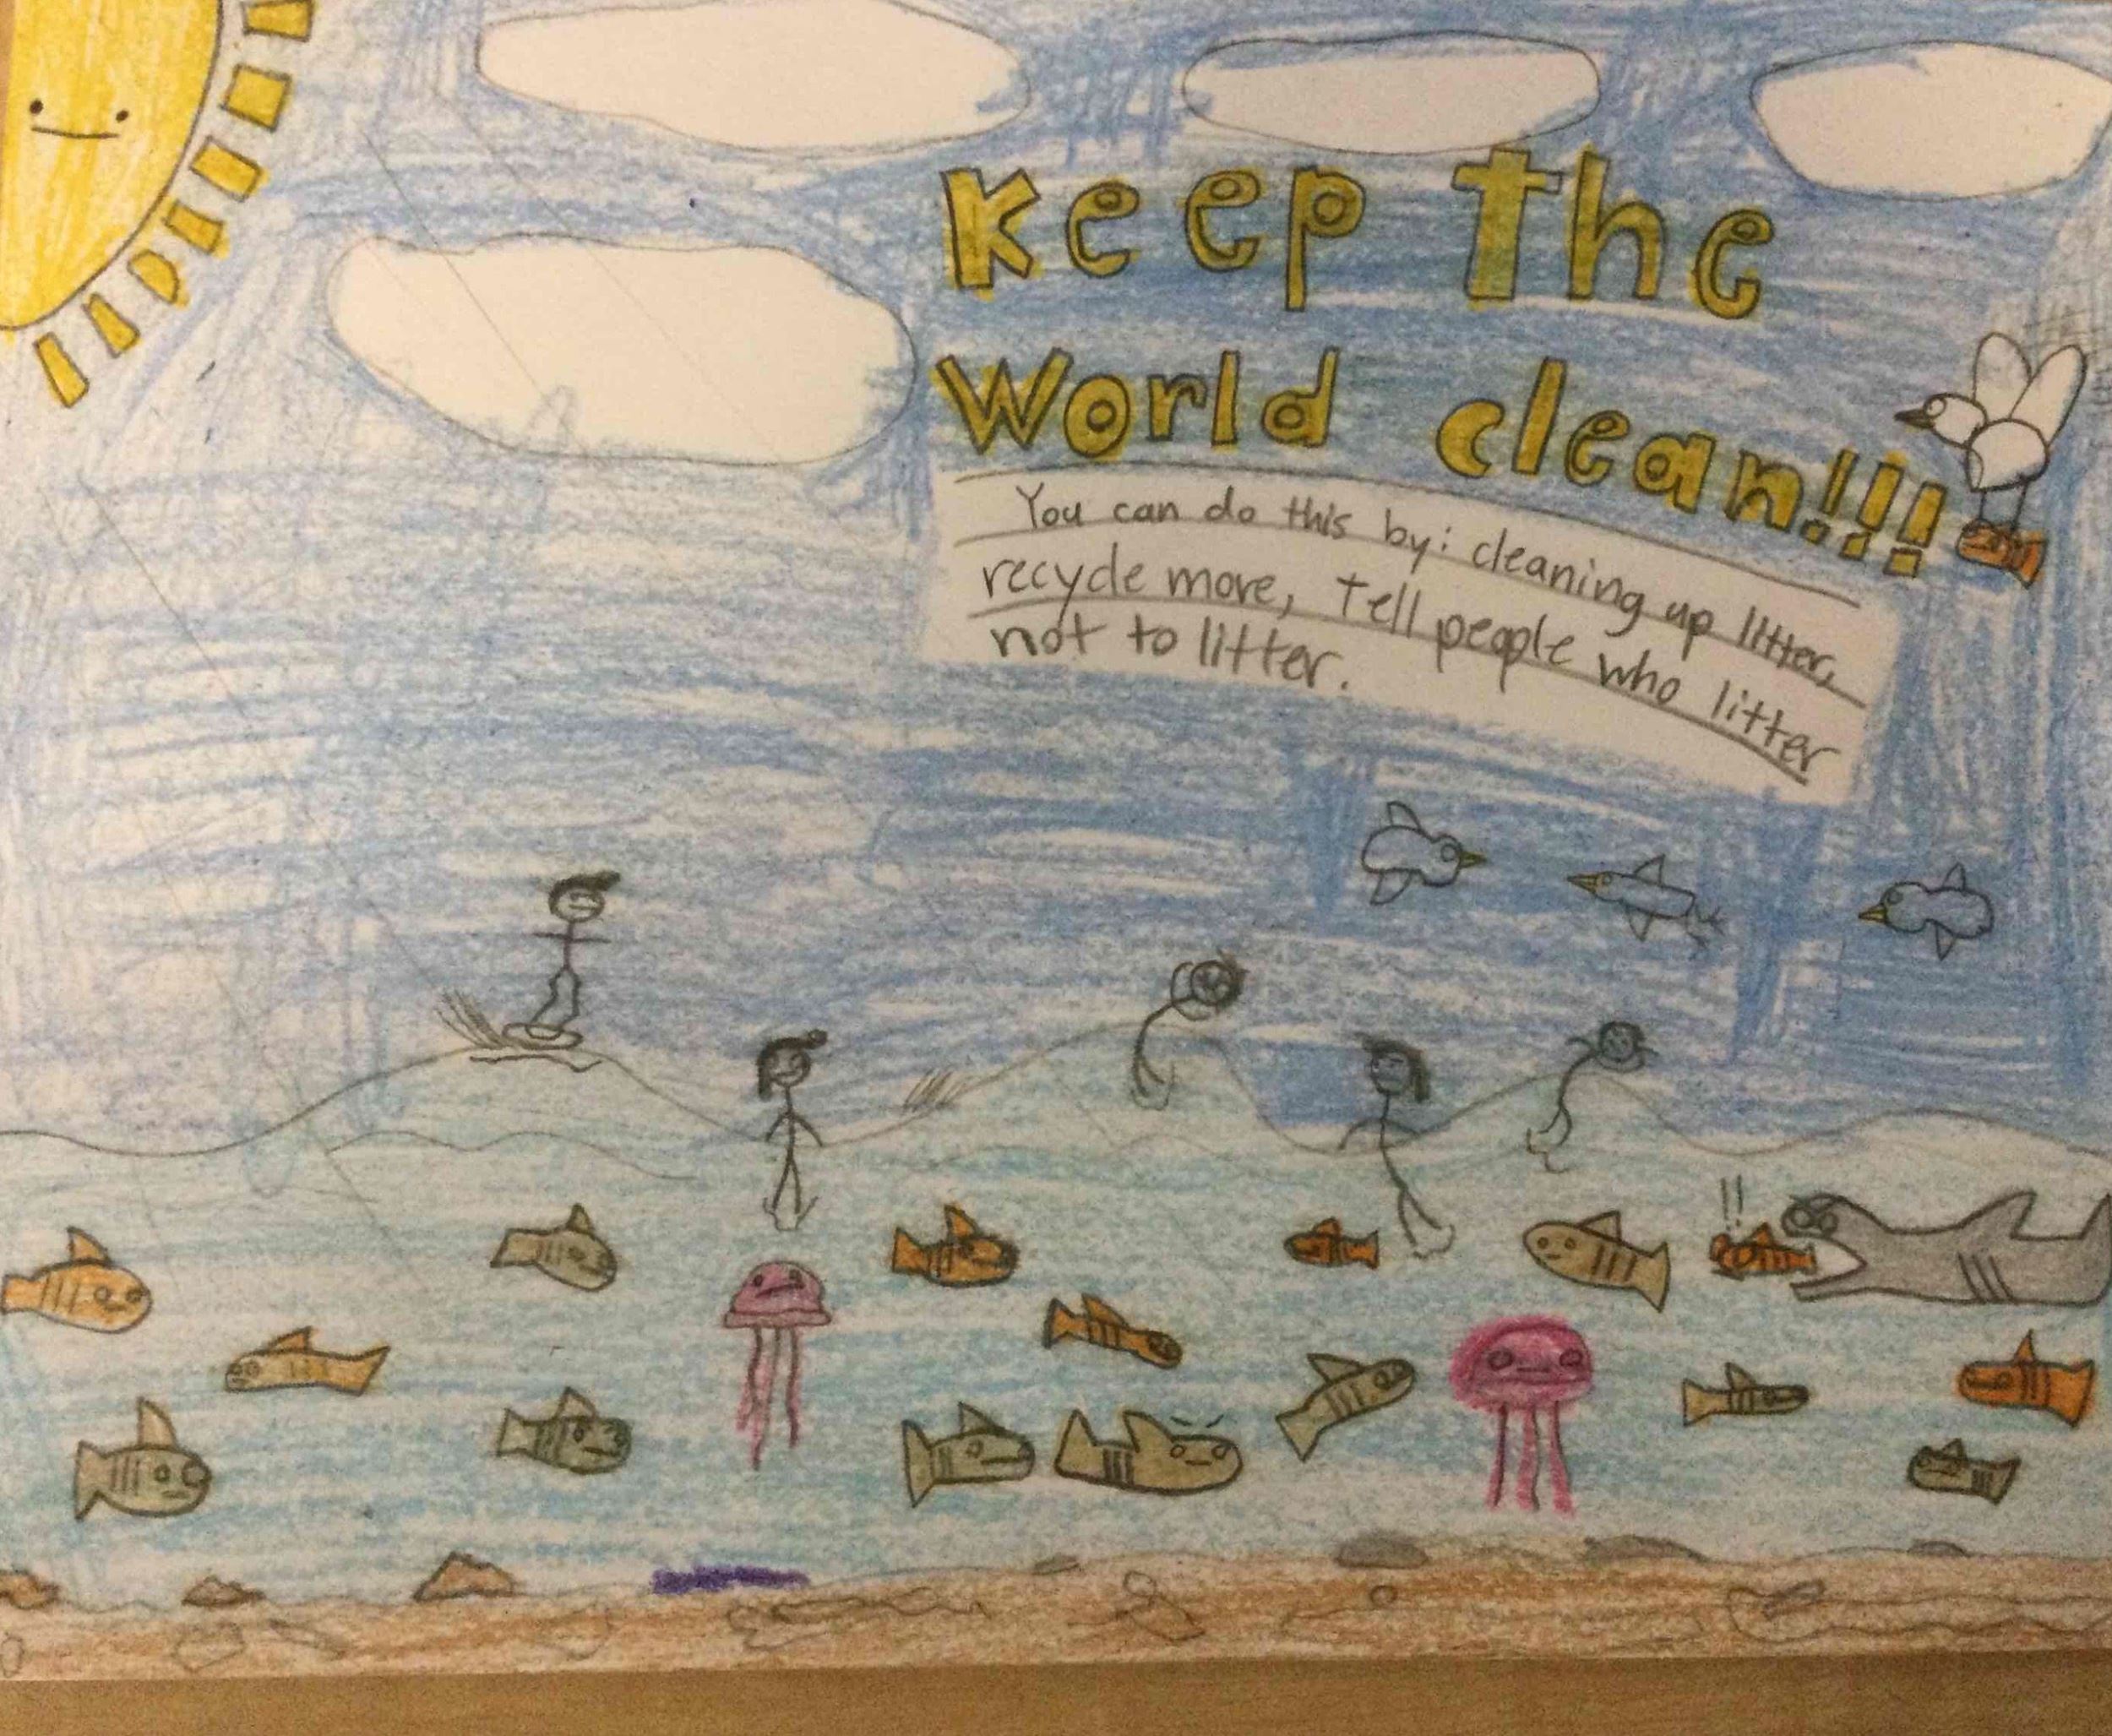 Keep The
World clean!!!
You can do this by: cleaning up litter,
recycle more, Tell people who litter
not to litter.
!!